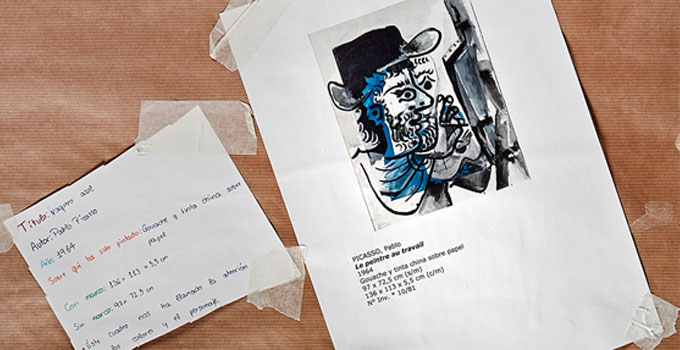 Título: Vaquero azul
Autor: Pablo Picasso
Año: 1964
Sobre qué ha sido pintado: Gouache y tinta china sobre
papel
Con marco: 136 x 113 x 5,5 cm
Sin marco: 97 x 72,5 cm
• Este cuadro nos ha llamado la atención
los colores y el personaje.
PICASSO, Pablo
Le peintre au travail
1964
Gouache y tinta china sobre papel
97 x 72,5 cm (s/m)
136 x 113 x 5,5 cm (c/m)
N° Inv. * 10/81